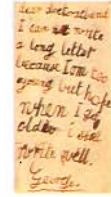 dear
I can not write
a long letter
because I am too
young but hope
when I get
older I will
write well.
George.